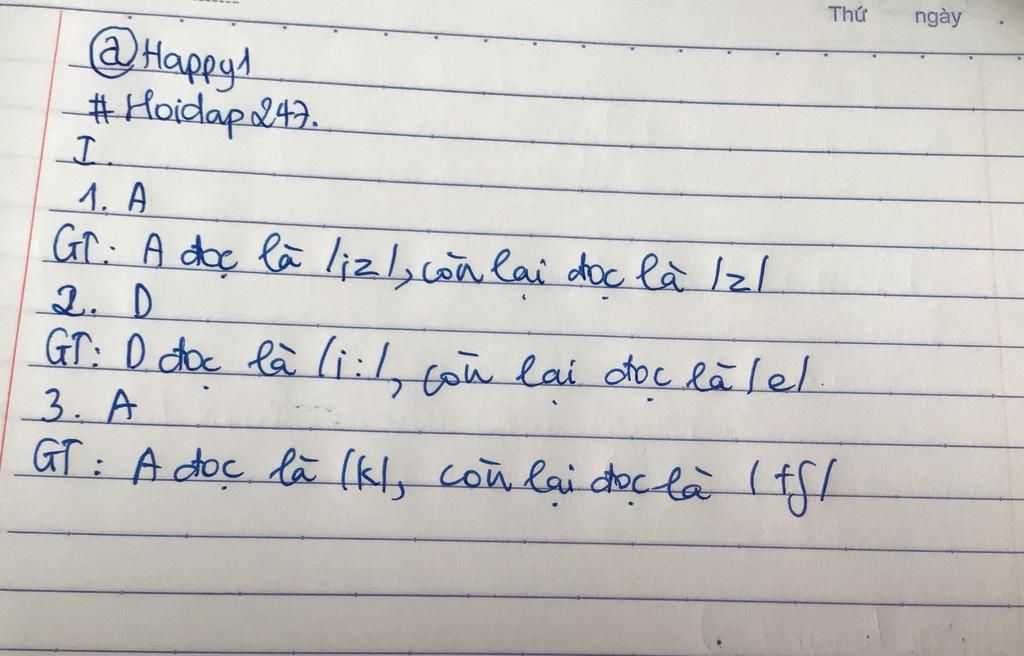 Thứ ngày .
@Happy1
# Hoidap247.
I.
1. A
GT: A đọc là /iz/, còn lại đọc là /z/
2. D
GT: D đọc là /i:/, còn lại đọc là /e/.
3. A
GT: A đọc là /k/, còn lại đọc là /tʃ/